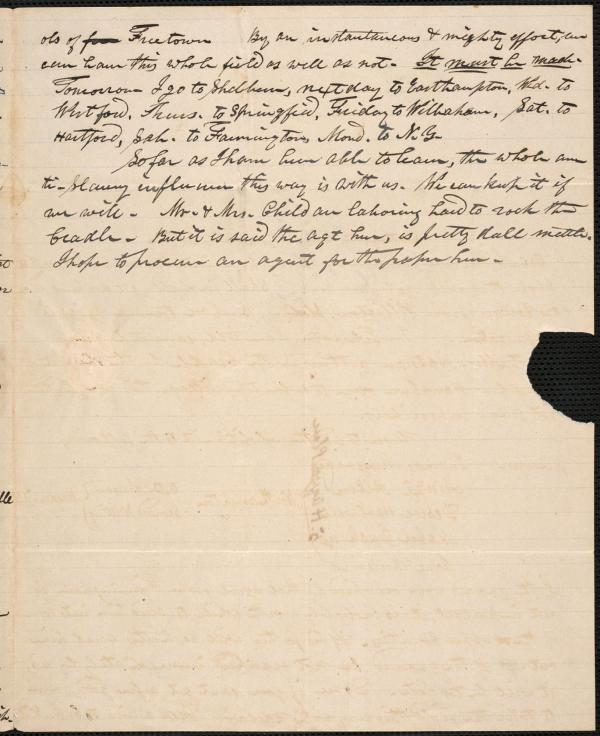 ols of for Freetown By an instantaneous & mighty effort, we
can have this whole field as well as not. It must be made.
Tomorrow I go to Shelburn, next day to Easthampton, Wed. to
Westford, Thurs. to Springfield, Friday to Wilbraham, Sat. to
Hartford, Sab. to Farmington, Mond. to N. G.
So far as I have been able to learn, the whole an
ti-slavery influence this way is with us. We can keep it if
we will. Mr. & Mrs. Child are laboring hard to rock the
Cradle. But it is said the agt her, is pretty dull mettle.
I hope to procure an agent for the paper here.